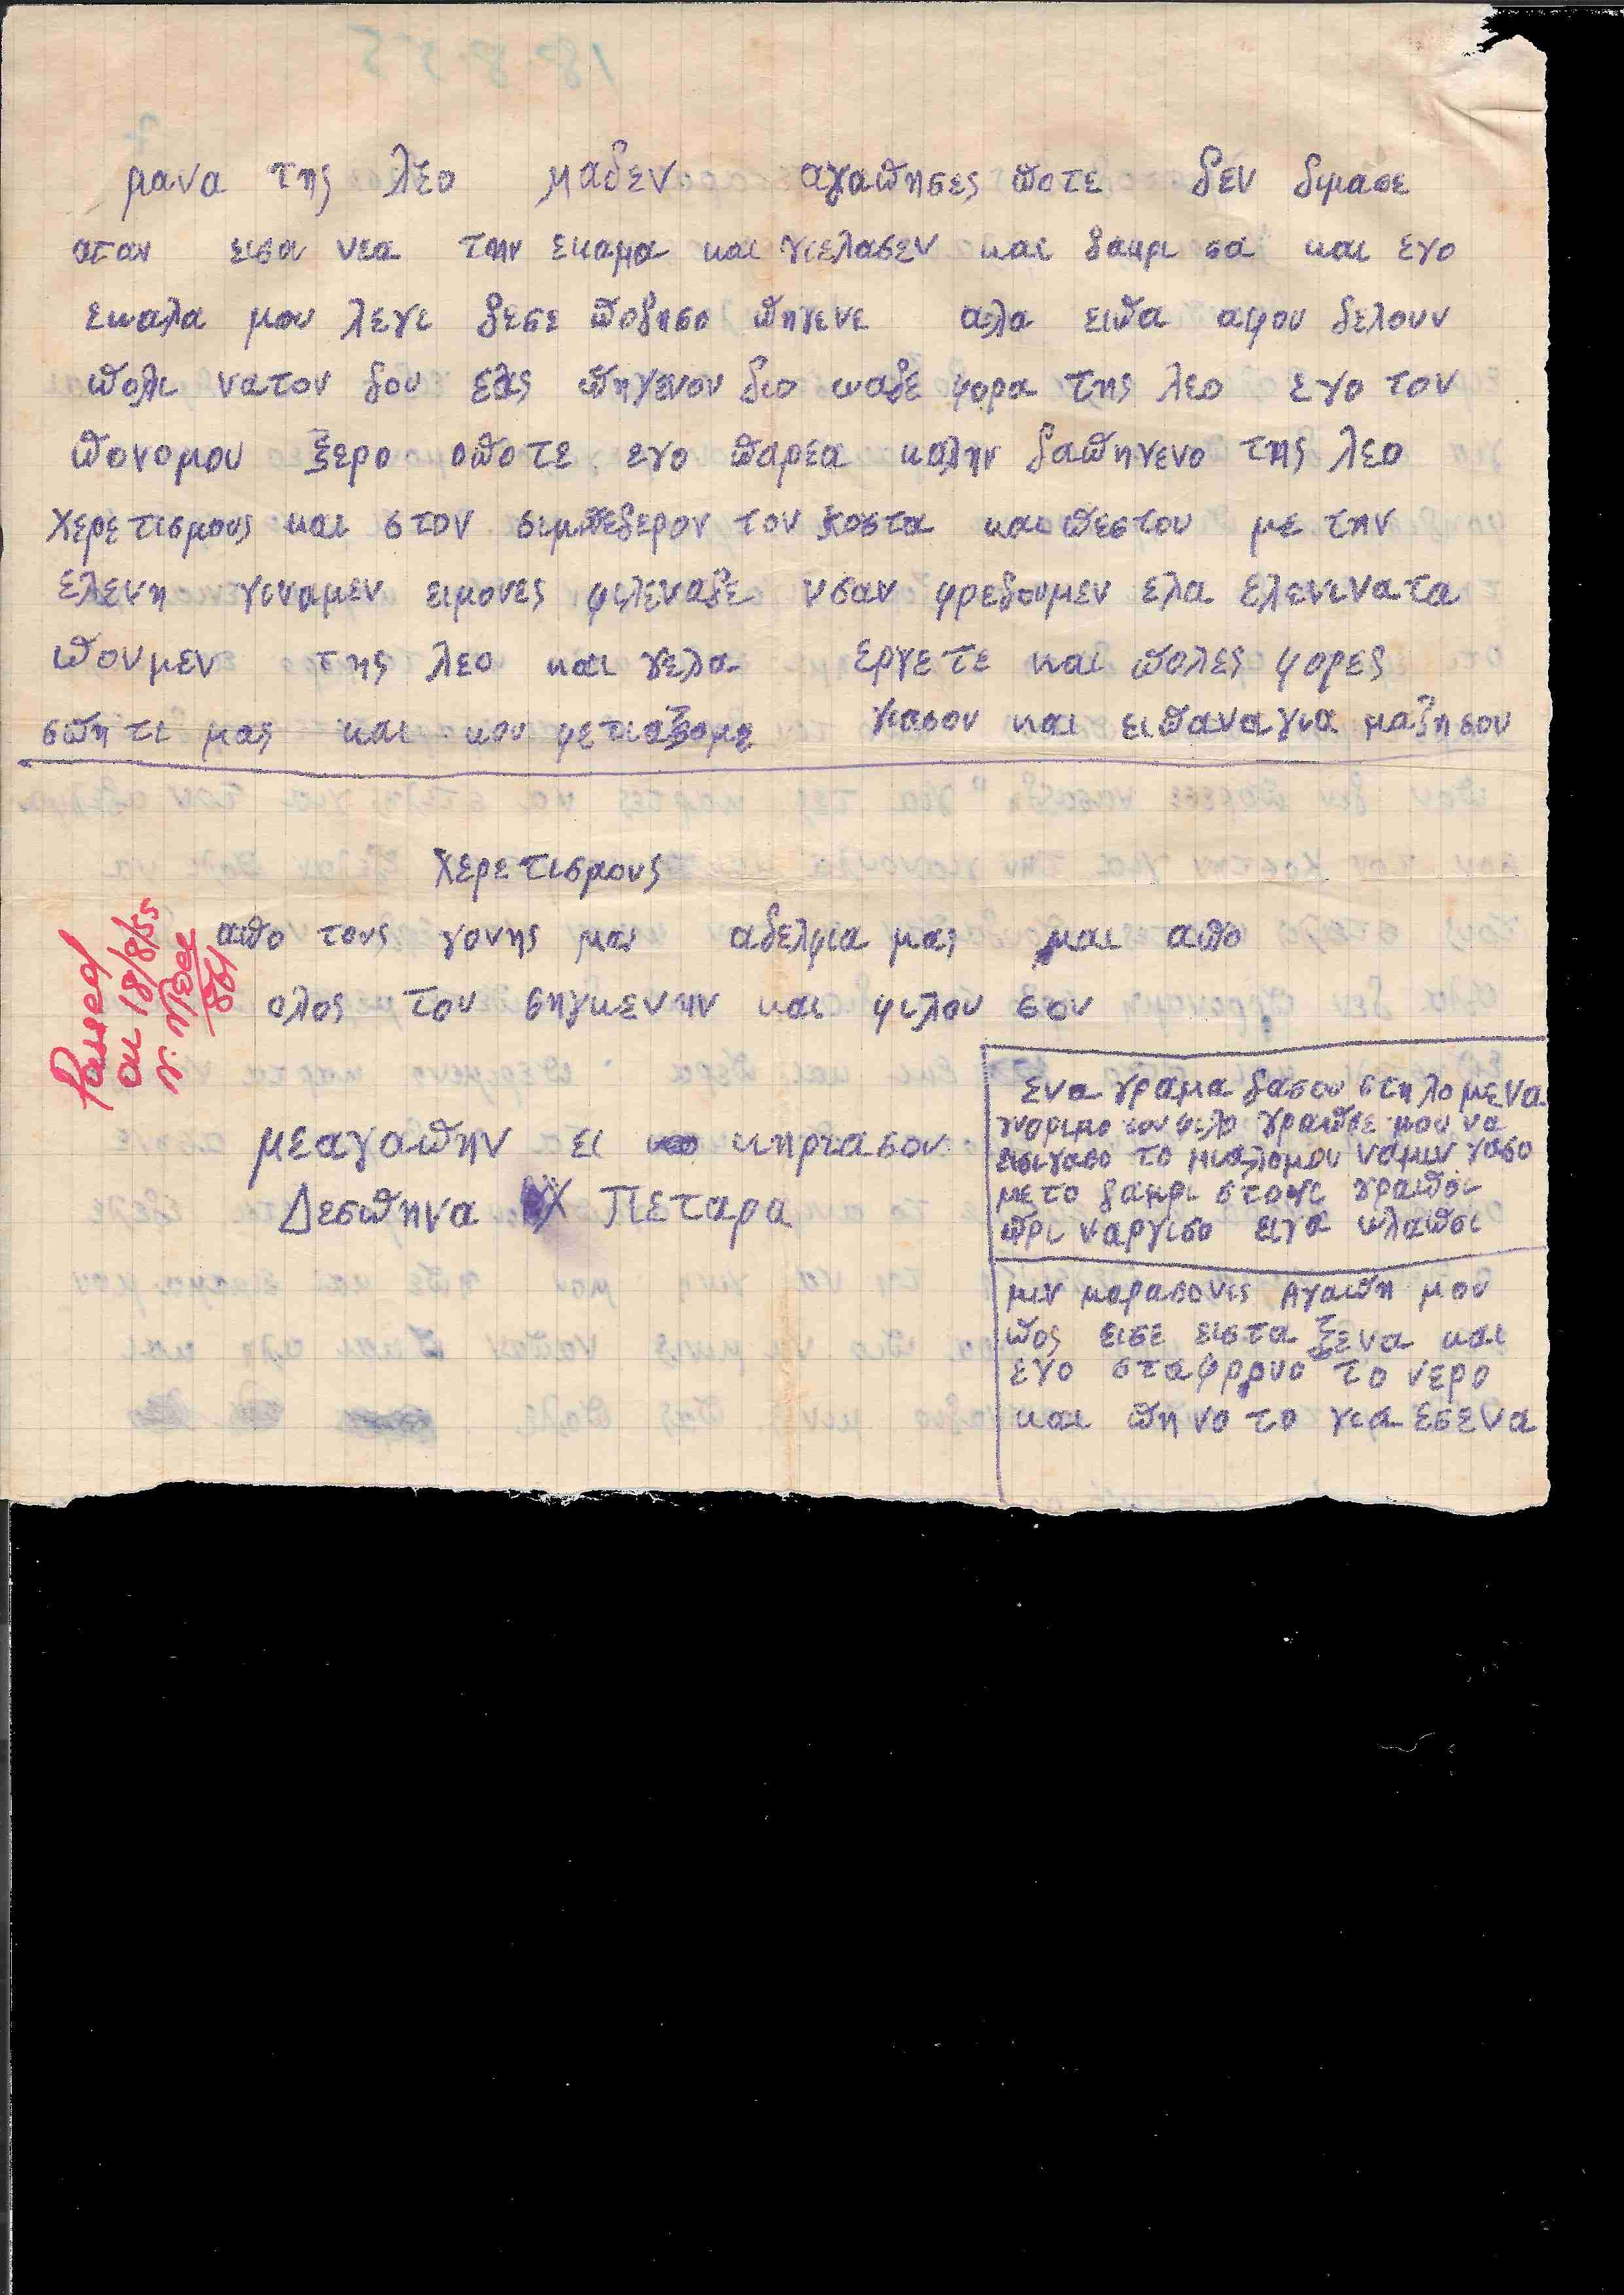 μανα της λεο μαδεν αγαπησες ποτε δεν διμασε
οταν εισα νεα την εκαμα και γιελασεν και δακρι σα και εγο
εκαλα μου λεγι δεσε ποδησο πηγενε αλα ειπα αφου δελουν
πολι νατον δου ελας πηγενον διο καδε φορα της λεο εγο τον
πονομου ξερο οποτε εγο παρεα καλην δαπηγενο της λεο
χερετισμους και στον σιμπεδερον τον κοστα και πεστου με την
ελενη γιναμεν ειμονες φιλεναδε νσαν φρεδουμεν ελα ελενινατα
πουμεν της λεο και γελα εργετε και πολες φορες
σπητι μας και κου φετιαζομε γιασου και ειπαναγια μαζησου
χερετισμους
απο τους γονης μας αδελφια μας και απο
ολος του σηγκενην και φιλου σου
μεαγαπην ει κηριασου
Δεσπηνα Χ Πεταρα
Passed
on 18/8/55
ενα γραμα δασου στηλομενα
γνοριμο του φιλο γραπσε μου να
εισιγασο το μιαλομου ναμιν χασο
με το δακρι στοχι γραπσι
πρι ναργισο ειγα κλαπσι
μιν μαρασονις Αγαπη μου
πος εισε ειστα ξενα και
εγο σταφρονο το νερο
και πηνο το για εσενα